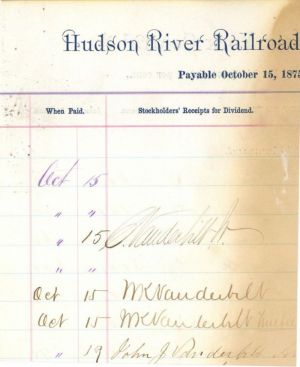 Hudson River Railroad
Payable October 15, 1875
When Paid. Stockholders' Receipts for Dividend.
Oct 15
" "
" 15 C. Vanderbilt Jr.
" "
Oct 15 WK Vanderbilt
Oct 15 WK Vanderbilt
" 19 John J. Vanderbilt